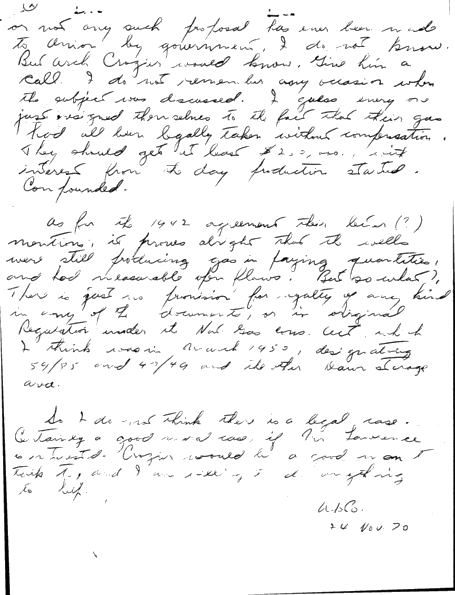 or not any such proposal has ever been made
to Union by government, I do not know.
But Arch Crozier would know. Give him a
call. I do not remember any occasion when
the subject was discussed. I guess every one
just resigned themselves to the fact that their gas
had all been legally taken without compensation.
They should get at least $2 with
interest from the day production started.
Compounded.
As for the 1942 agreement their (?)
mentions, it proves alright that the wells
were still producing gas in paying quantities,
and had measurable open flows. But so what?
There is just no provision for royalty of any kind
in any of the documents, or in original
Regulation under the Nat Gas Cons. Act which
I think was in March 1950, designating
59/85 and 47/49 and the other Dawn storage
area.
So I do not think there is a legal case.
Certainly a good moral case, if Mr Lawrence
is interested. Crozier would be a good man to
talk to, and I am willing to do anything
to help.
24 Nov. 70